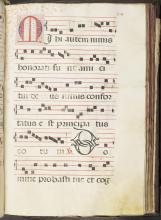 Mihi autem nimis
honorati sunt ami ci
tui de us nimis confor
tatus e st principa tus
eo rum Do
mine probasti me et cog